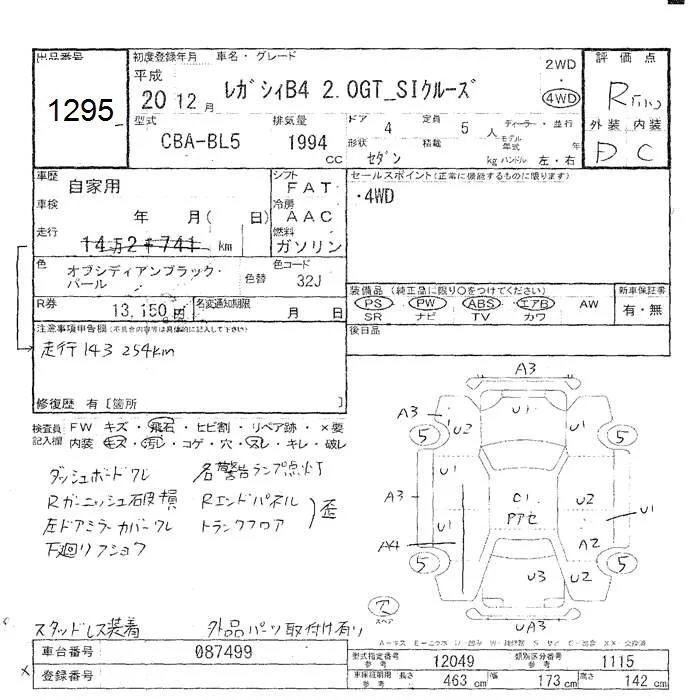 出品番号 初度登録年月 車名・グレード 評価点
1295
平成
20 12月 レガシィB4 2.0GT_SIクルーズ 2WD・4WD R
外装 内装
D C
型式 排気量 ドア 4 定員 5人 ディーラー・並行
CBA-BL5 1994cc 形状 セダン 積載 kg モデル年式 年
ハンドル 左・右
車歴 自家用 シフト FAT セールスポイント(正常に機能するものに限ります)
車検 年 月( 日) 冷房 AAC ・4WD
走行 14万2千741 km 燃料 ガソリン
色 オブシディアンブラック・パール 色替 色コード 32J
装備品 (純正品に限り○をつけてください) 新車保証書
PS PW ABS エアB AW 有・無
SR ナビ TV カワ
R券 13,150円 名変通知期限 月 日
後日品
注意事項申告欄(不具合内容等は具体的に記入して下さい)
走行143254km
修復歴 有[箇所 ]
検査員記入欄 FW キズ・飛石・ヒビ割・リペア跡・×要
内装 キズ・汚レ・コゲ・穴・スレ・キレ・破レ
ダッシュボードワレ 各警告ランプ点灯
Rガーニッシュ破損 Rエンドパネル
左ドアミラーカバーワレ トランクフロア 歪
下廻りアショウ
A3
U1
A3 U2 U1
5 5
U1
A3 C1 U2
アアセ
U1 U1
A4 A2
5 5
U3 U2
スペア
UA3
スタッドレス装着 外品パーツ取付け有り
A-キズ E-エクボ U-凹み W-補修跡 S-サビ C-腐食 XX-交換済
車台番号 087499
型式指定番号 参考 12049 類別区分番号 参考 1115
×登録番号
車庫証明用 参考 長さ 463 cm 幅 173 cm 高さ 142 cm